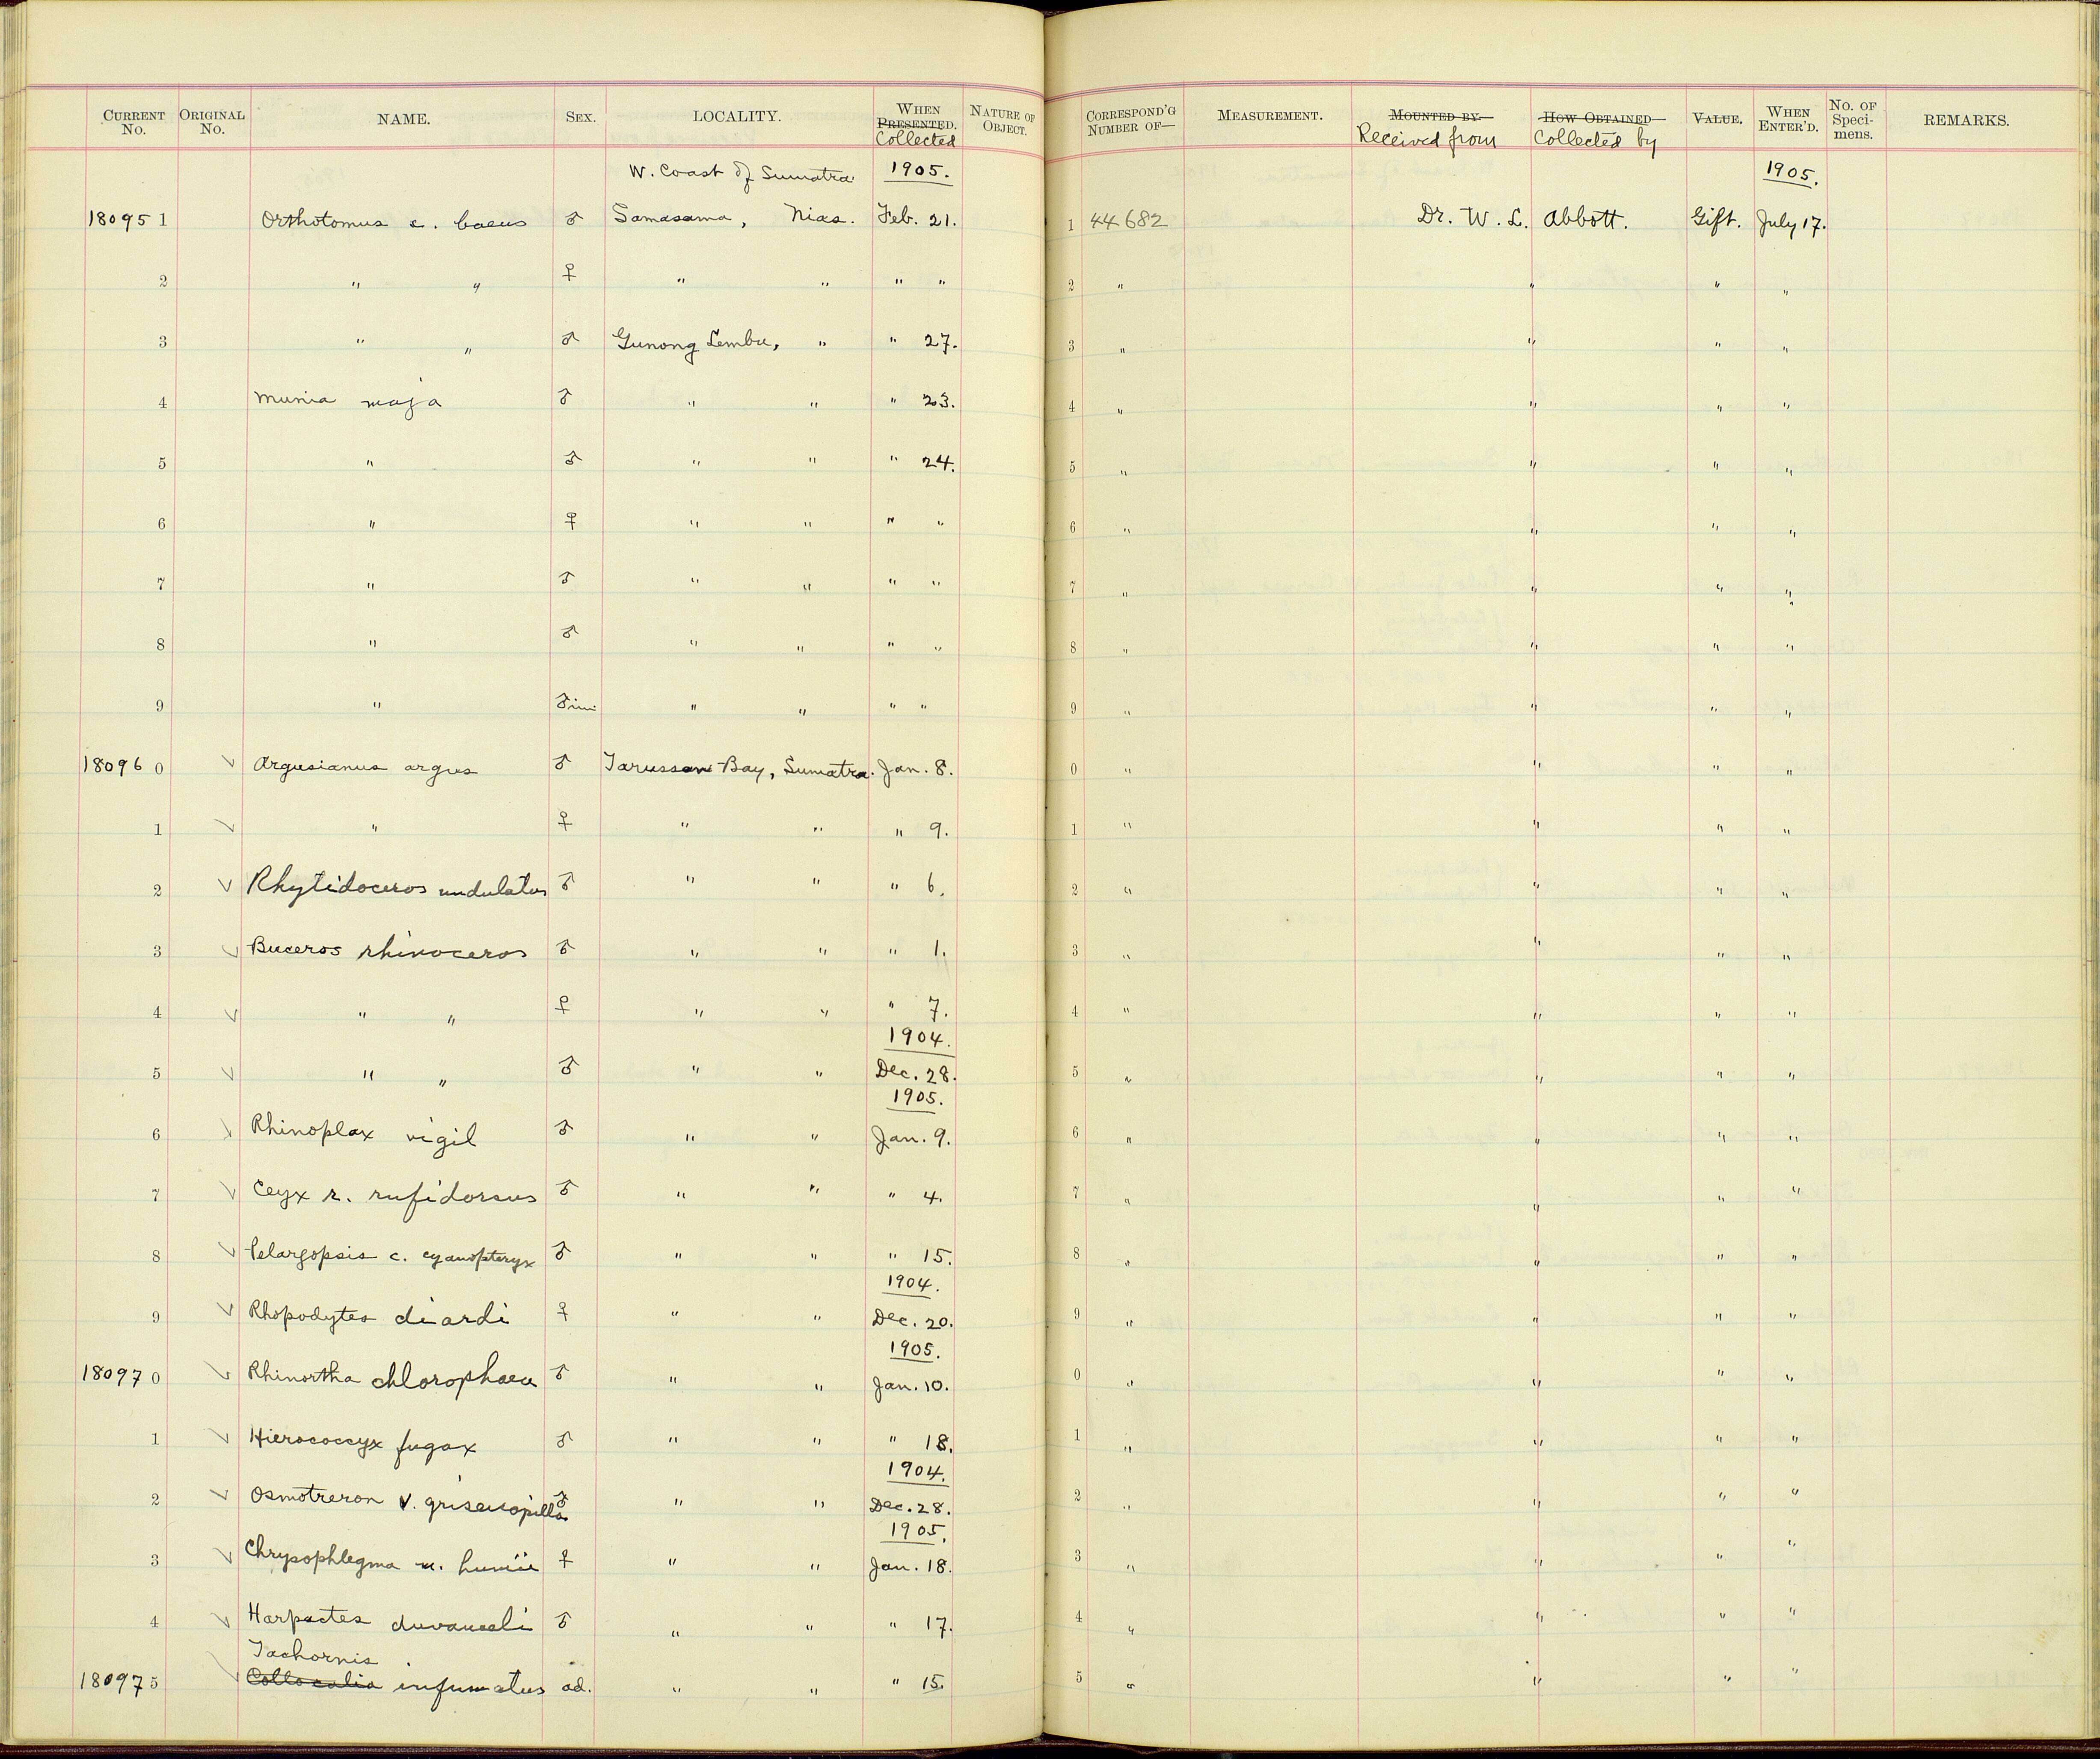 CURRENT No. ORIGINAL No. NAME. SEX. LOCALITY. WHEN PRESENTED. Collected NATURE OF OBJECT. CORRESPOND'G NUMBER OF— MEASUREMENT. MOUNTED BY— Received from HOW OBTAINED— Collected by VALUE. WHEN ENTER'D. No. OF Speci-mens. REMARKS.
W. Coast of Sumatra 1905. 1905.
18095 1 Orthotomus c. baeus ♂ Samasama, Nias. Feb. 21. 1 44682 Dr. W. L. Abbott. Gift. July 17.
2 " " ♀ " " " " 2 " " " "
3 " " ♂ Gunong Lembu, " " 27. 3 " " " "
4 Munia maja ♂ " " " 23. 4 " " " "
5 " ♂ " " " 24. 5 " " " "
6 " ♀ " " " " 6 " " " "
7 " ♂ " " " " 7 " " " "
8 " ♂ " " " " 8 " " " "
9 " ♂ im. " " " " 9 " " " "
18096 0 ✓ Argusianus argus ♂ Tarussan Bay, Sumatra. Jan. 8. 0 " " " "
1 ✓ " ♀ " " " 9. 1 " " " "
2 ✓ Rhytidoceros undulatus ♂ " " " 6. 2 " " " "
3 ✓ Buceros rhinoceros ♂ " " " 1. 3 " " " "
4 ✓ " " ♀ " " " 7. 4 " " " "
1904.
5 ✓ " " ♂ " " Dec. 28. 5 " " " "
1905.
6 ✓ Rhinoplax vigil ♂ " " Jan. 9. 6 " " " "
7 ✓ Ceyx r. rufidorsus ♂ " " " 4. 7 " " " "
8 ✓ Pelargopsis c. cyanopteryx ♂ " " " 15. 8 " " " "
1904.
9 ✓ Rhopodytes diardi ♀ " " Dec. 20. 9 " " " "
1905.
18097 0 ✓ Rhinortha chlorophaea ♂ " " Jan. 10. 0 " " " "
1 ✓ Hierococcyx fugax ♂ " " " 18. 1 " " " "
1904.
2 ✓ Osmotreron v. griseicapilla ♂ " " Dec. 28. 2 " " " "
1905.
3 ✓ Chrysophlegma m. humii ♀ " " Jan. 18. 3 " " " "
4 ✓ Harpactes duvauceli ♂ " " " 17. 4 " " " "
Tachornis
18097 5 Collocalia infumatus ad. " " " 15. 5 " " " "